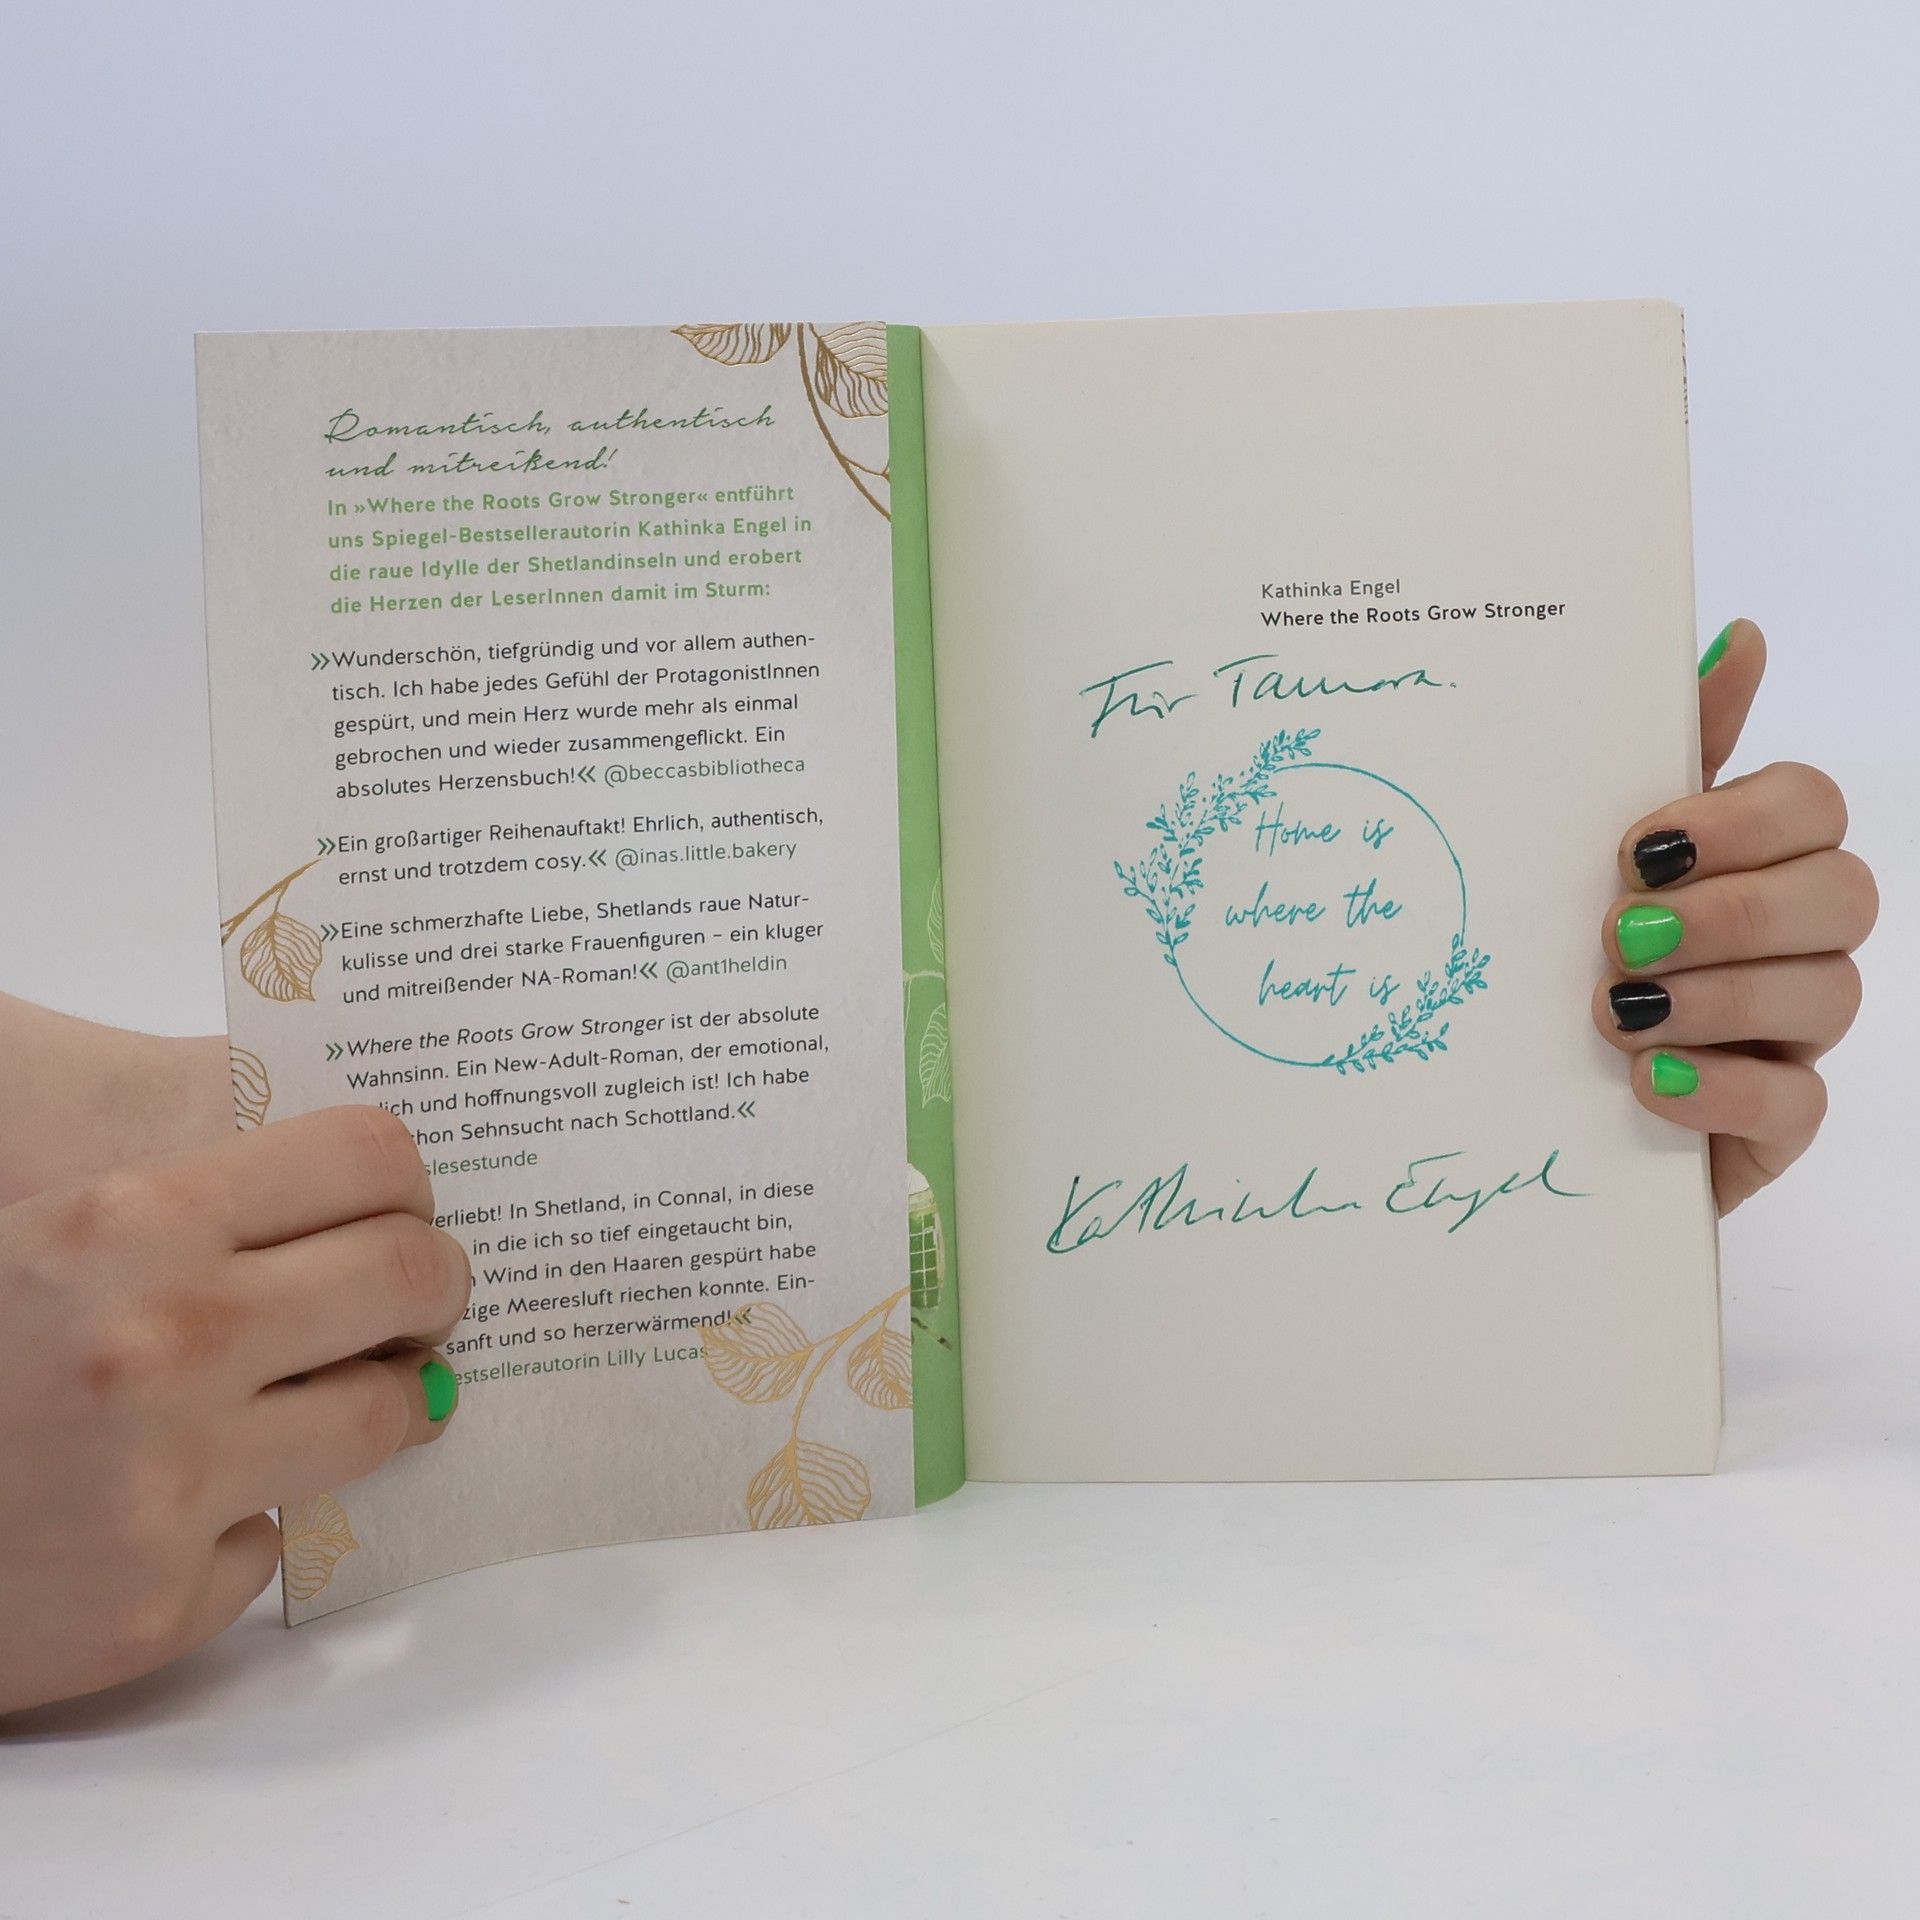 Romantisch, authentisch
und mitreißend!
In »Where the Roots Grow Stronger« entführt
uns Spiegel-Bestsellerautorin Kathinka Engel in
die raue Idylle der Shetlandinseln und erobert
die Herzen der LeserInnen damit im Sturm:
»Wunderschön, tiefgründig und vor allem authen-
tisch. Ich habe jedes Gefühl der ProtagonistInnen
gespürt, und mein Herz wurde mehr als einmal
gebrochen und wieder zusammengeflickt. Ein
absolutes Herzensbuch!« @beccasbibliotheca
»Ein großartiger Reihenauftakt! Ehrlich, authentisch,
ernst und trotzdem cosy.« @inas.little.bakery
»Eine schmerzhafte Liebe, Shetlands raue Natur-
kulisse und drei starke Frauenfiguren – ein kluger
und mitreißender NA-Roman!« @ant1heldin
»Where the Roots Grow Stronger ist der absolute
Wahnsinn. Ein New-Adult-Roman, der emotional,
lich und hoffnungsvoll zugleich ist! Ich habe
chon Sehnsucht nach Schottland.«
slesestunde
verliebt! In Shetland, in Connal, in diese
in die ich so tief eingetaucht bin,
n Wind in den Haaren gespürt habe
zige Meeresluft riechen konnte. Ein-
sanft und so herzerwärmend!«
estsellerautorin Lilly Lucas
Kathinka Engel
Where the Roots Grow Stronger
Für Tamara.
Home is
where the
heart is
Kathinka Engel